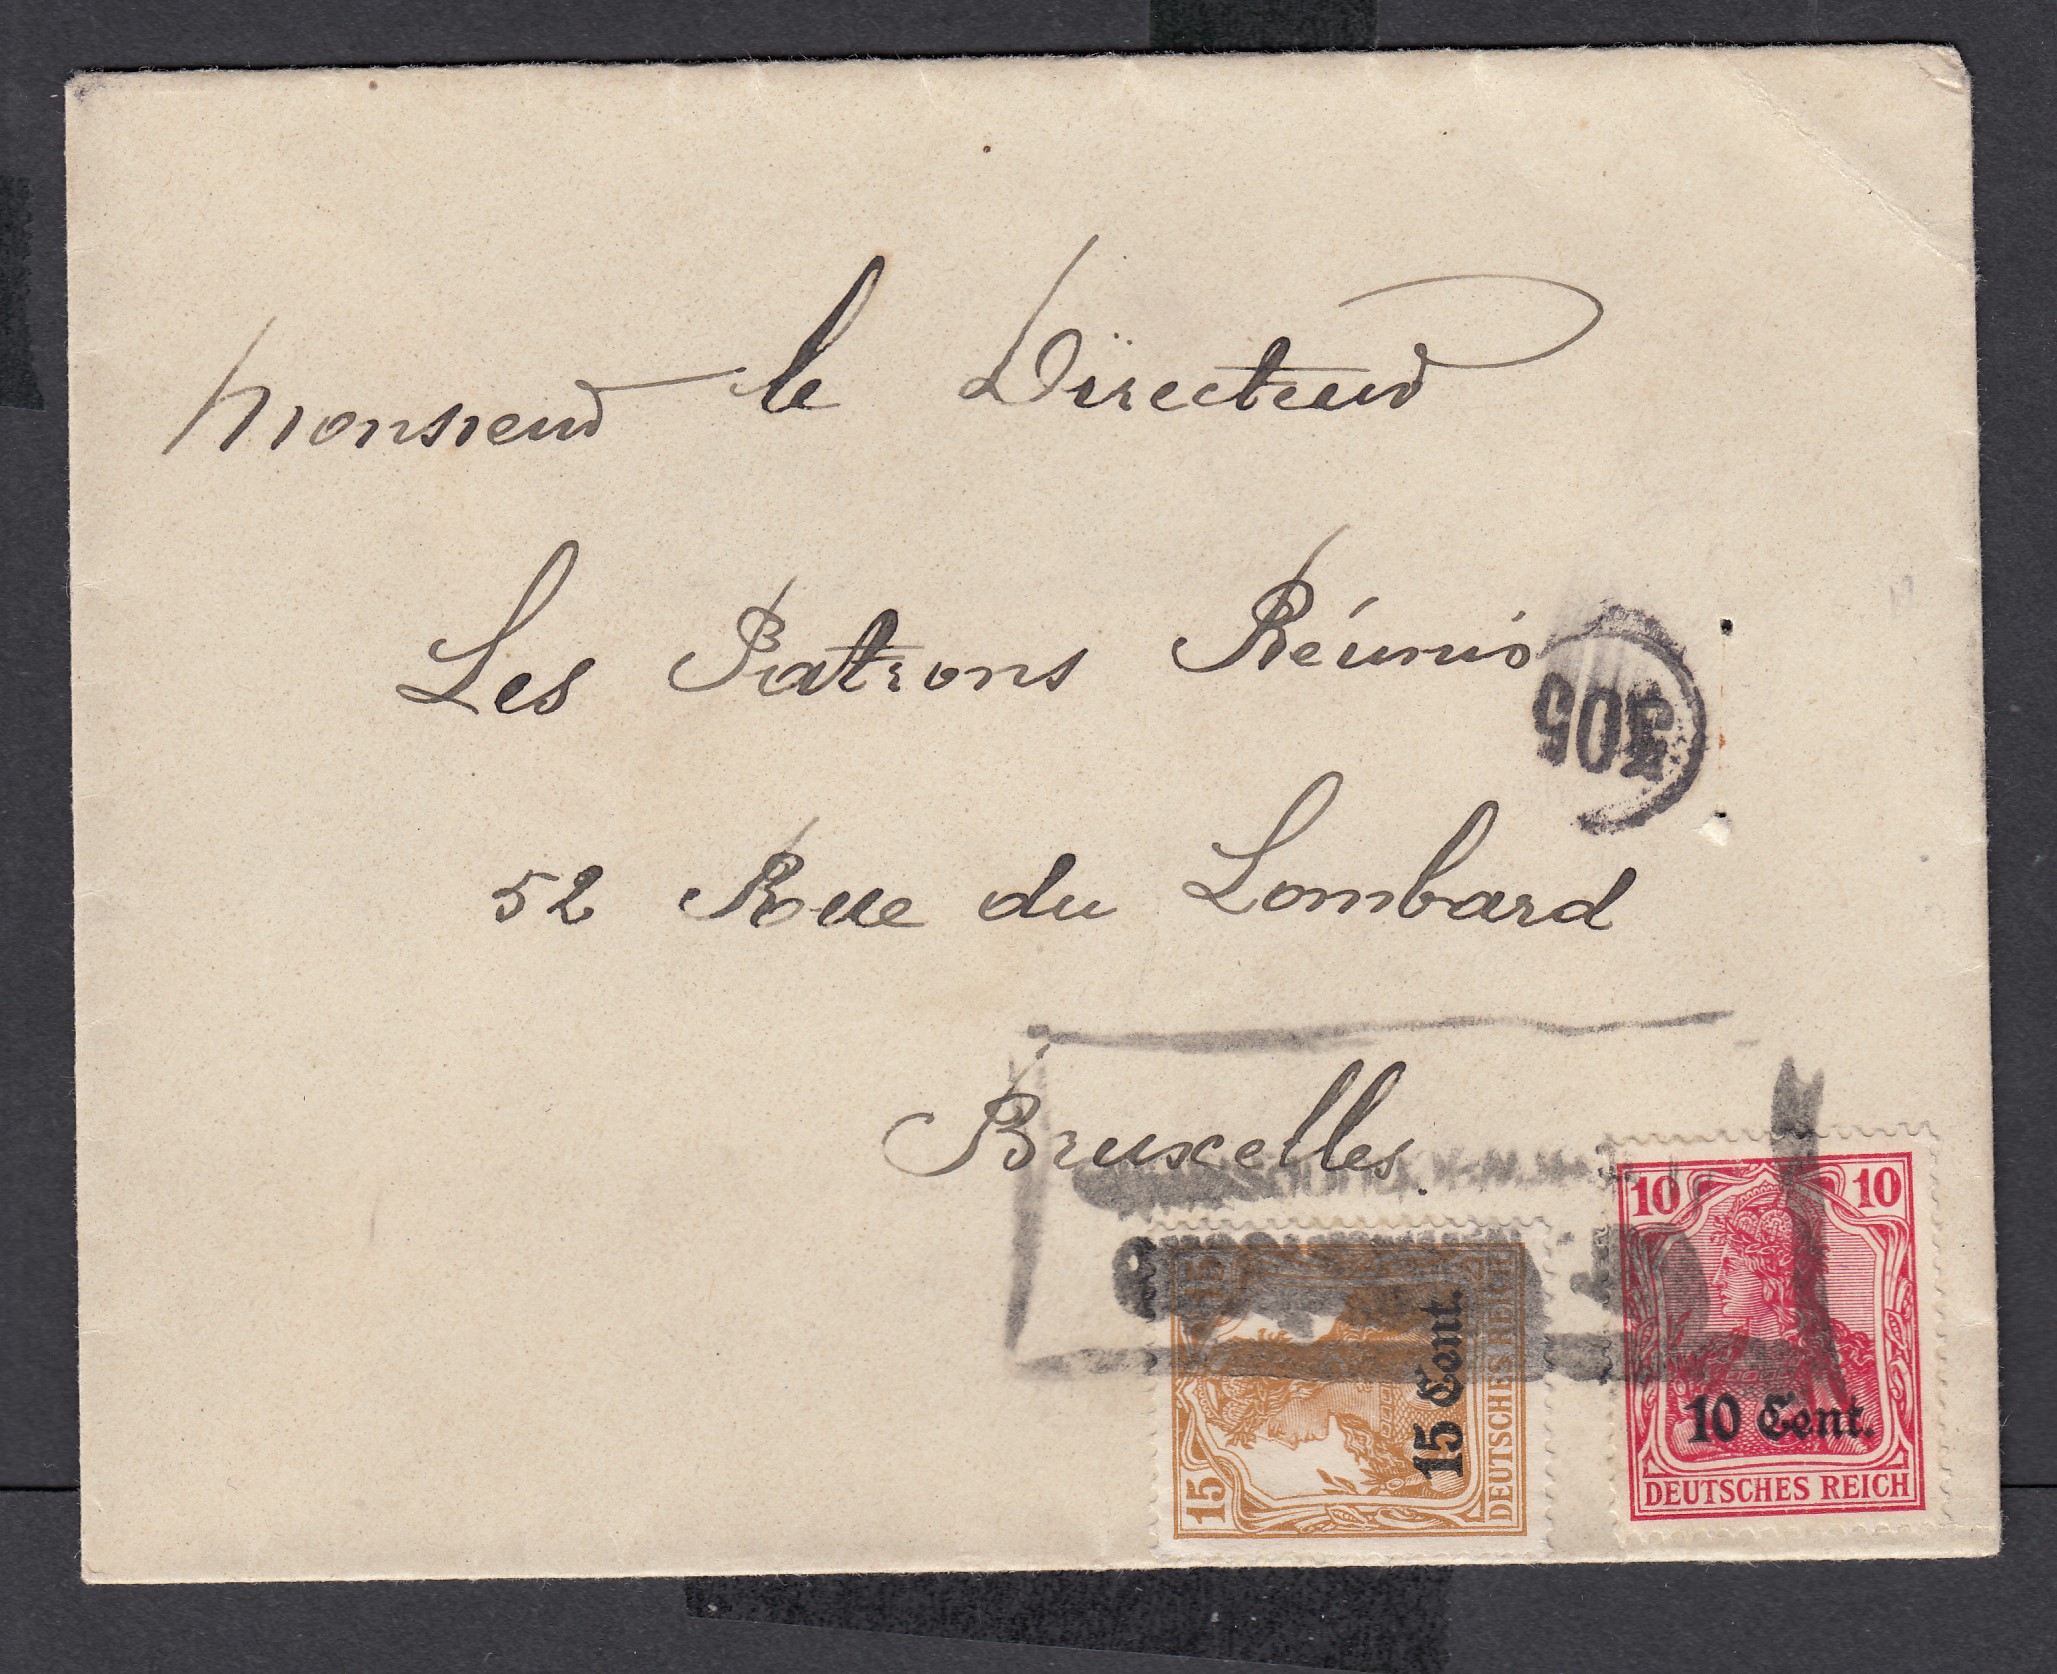 Monsieur le Directeur
Les Patrons Réunis
305
52 Rue du Lombard
Bruxelles.
10 10
10 Cent.
DEUTSCHES REICH
15 15
15 Cent.
DEUTSCHES REICH